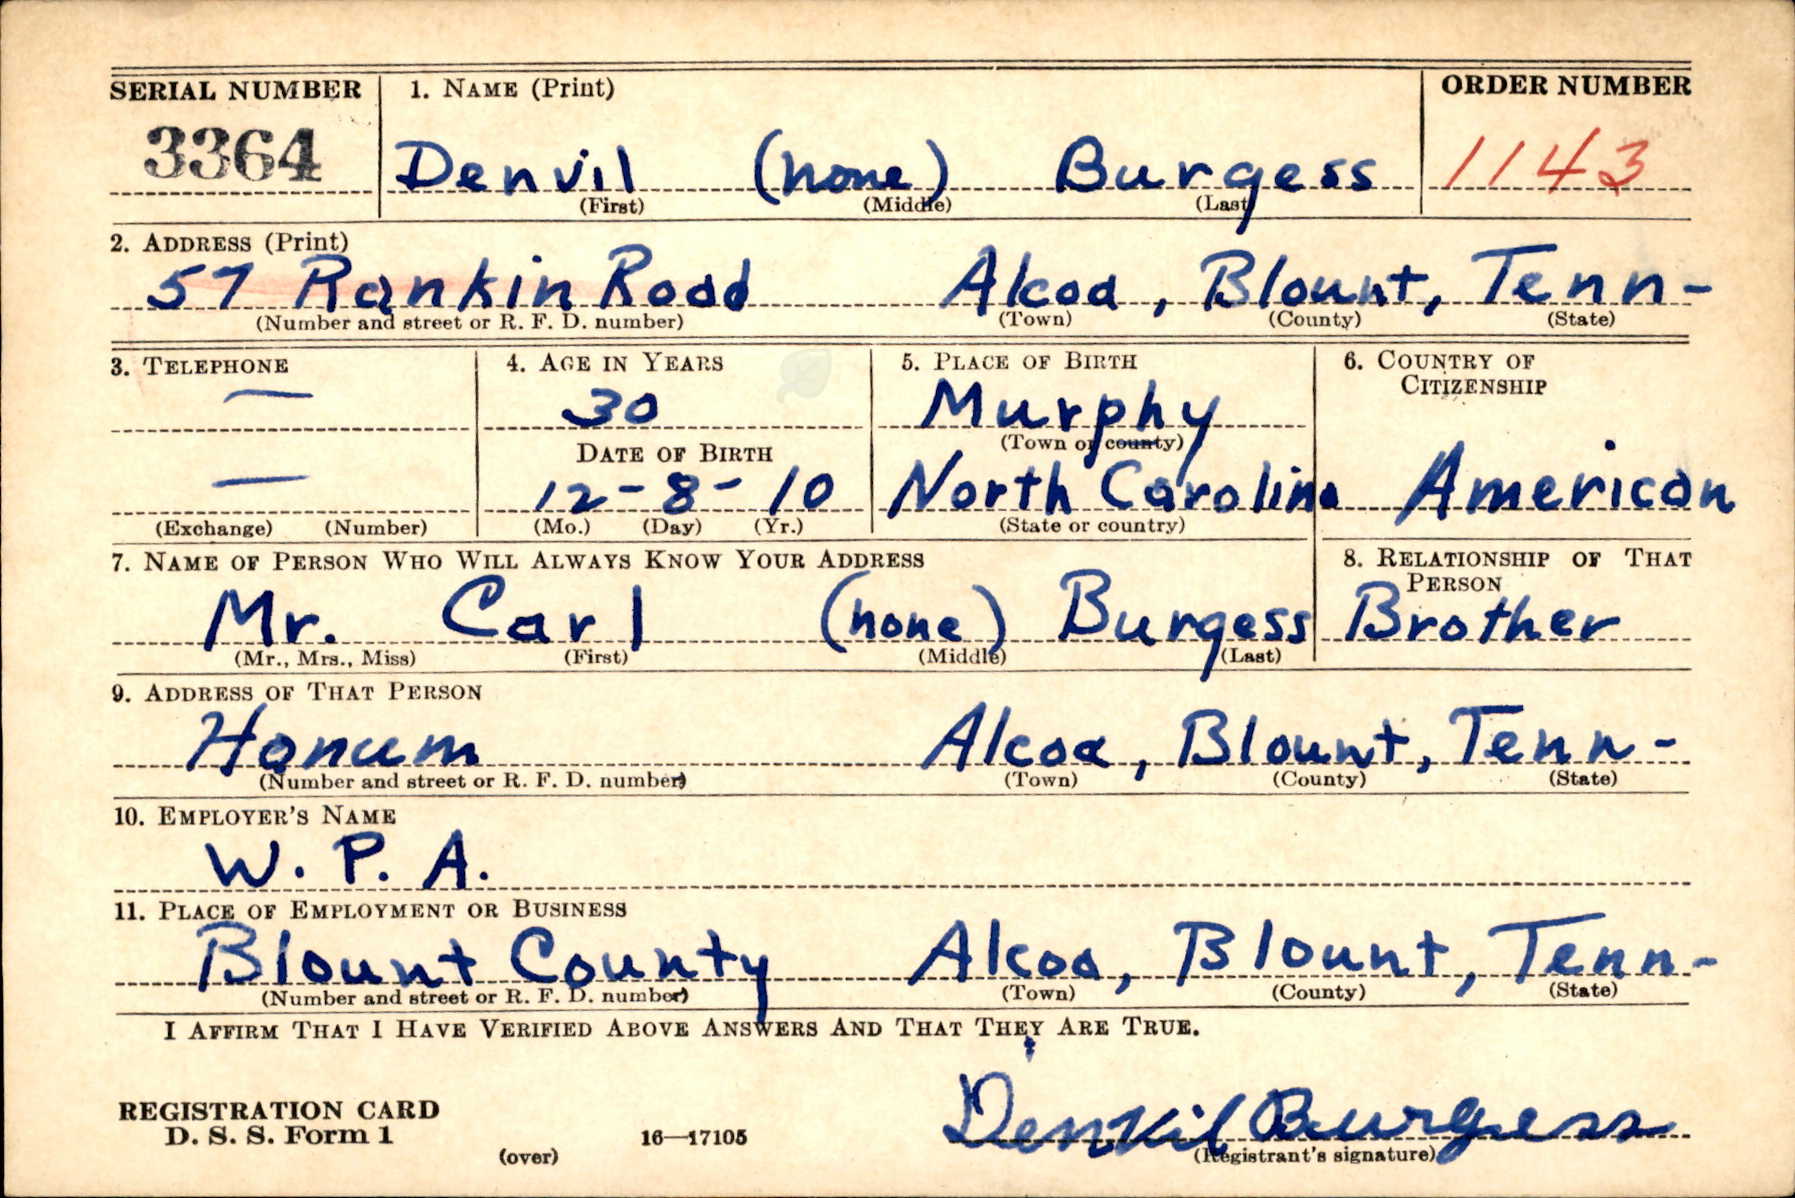 SERIAL NUMBER 1. NAME (Print) ORDER NUMBER
3364 Denvil (none) Burgess 1143
(First) (Middle) (Last)
2. ADDRESS (Print)
57 Rankin Road Alcoa, Blount, Tenn-
(Number and street or R. F. D. number) (Town) (County) (State)
3. TELEPHONE 4. AGE IN YEARS 5. PLACE OF BIRTH 6. COUNTRY OF
CITIZENSHIP
— 30 Murphy
(Town or county)
DATE OF BIRTH
— 12-8-10 North Carolina American
(Exchange) (Number) (Mo.) (Day) (Yr.) (State or country)
7. NAME OF PERSON WHO WILL ALWAYS KNOW YOUR ADDRESS 8. RELATIONSHIP OF THAT
PERSON
Mr. Carl (none) Burgess Brother
(Mr., Mrs., Miss) (First) (Middle) (Last)
9. ADDRESS OF THAT PERSON
Hanum Alcoa, Blount, Tenn-
(Number and street or R. F. D. number) (Town) (County) (State)
10. EMPLOYER'S NAME
W. P. A.
11. PLACE OF EMPLOYMENT OR BUSINESS
Blount County Alcoa, Blount, Tenn-
(Number and street or R. F. D. number) (Town) (County) (State)
I AFFIRM THAT I HAVE VERIFIED ABOVE ANSWERS AND THAT THEY ARE TRUE.
REGISTRATION CARD
D. S. S. Form 1 Denvil Burgess
(over) 16—17105 (Registrant's signature)